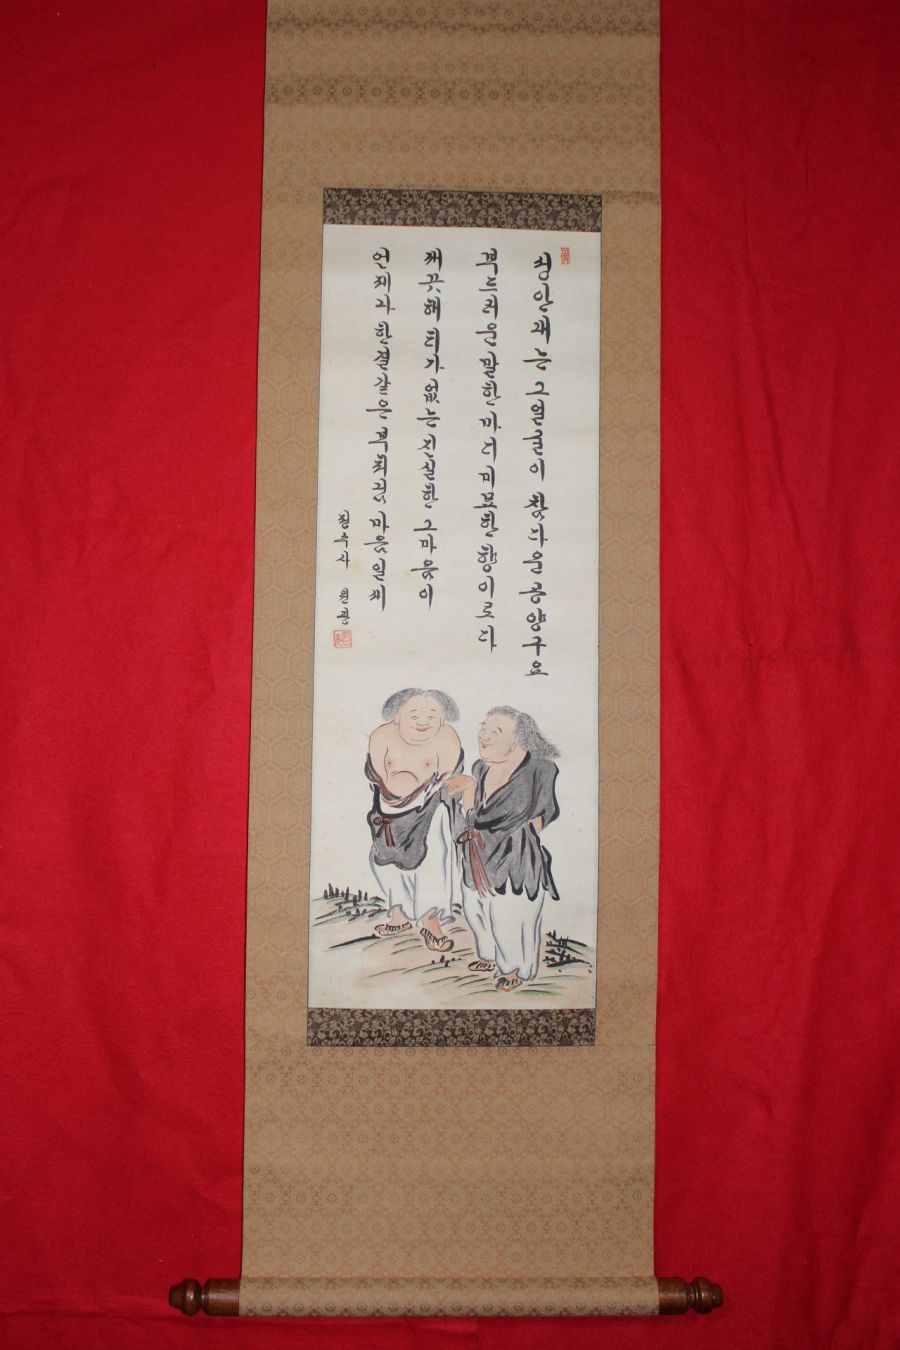 성안내는 그 얼굴이 참다운 공양구요
부드러운 말한마디 미묘한 향이로다
깨끗해 티가 없는 진실한 그 마음이
언제나 한결같은 부처님 마음일세
정수사 원광